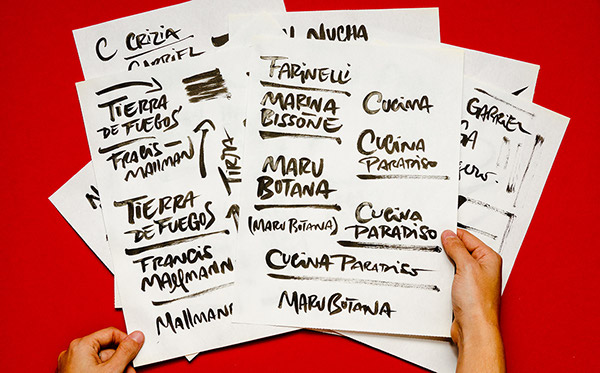 C CRIZIA
GABRIEL
NUCHA
TIERRA
DE FUEGOS
FRABIS-
MALLMAN
TIERRA
DE FUEGOS
FRANCIS
MALLMANN
MALLMANN
FARINELLI
MARINA
BISSONE
MARU
BOTANA
(MARU BOTANA)
CUCINA
CUCINA
PARADISO
CUCINA
PARADISO
CUCINA PARADISO
MARU BOTANA
GABRIEL